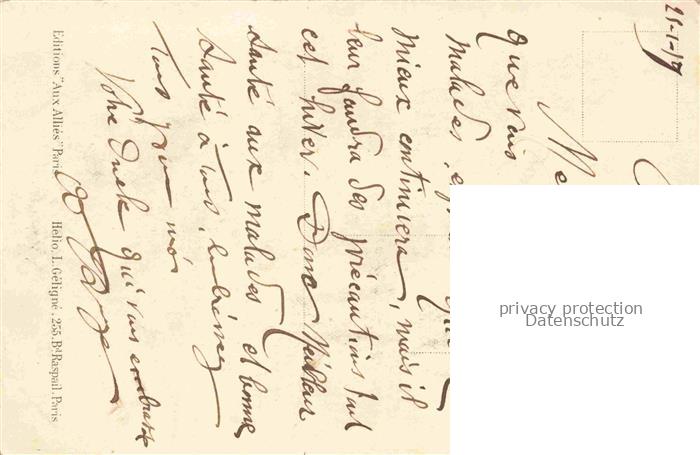 25-1-17
Me
que vais
malades, e
mieux continuera, mais il
leur faudra des précautions tout
cet hiver. Donc Meilleure
santé aux malades et bonne
santé à Tous, embrassez
Tous pour moi
Votre Oncle qui vous embrasse
Editions "Aux Alliés" Paris
Hélio. L. Géligné, 255, Bd Raspail. Paris
privacy protection
Datenschutz